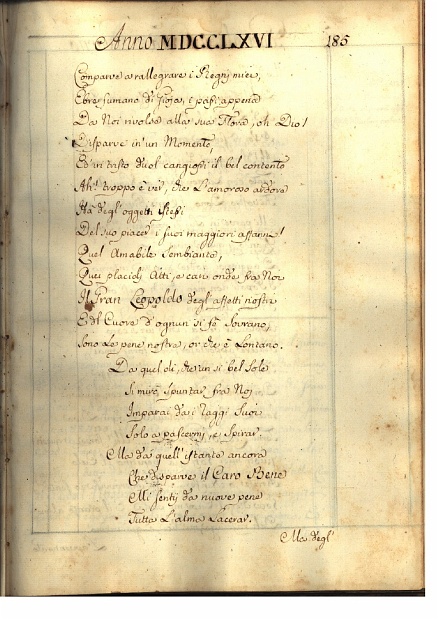 Anno MDCCLXVI 185
Comparve a rallegrare i Regni miei,
Ebre fumano di gioja, i passi appena
Da Noi rivolse alla sua Flora, oh Dio!
Disparve in un Momento,
Ed in tristo duol cangiossi il bel contento
Ah! troppo è ver, che L'amoroso ardore
Ha degl'oggetti stessi
Del suo piacer i suoi maggiori affanni!
Quel Amabile Sembiante,
Quei placidi Atti, e cari onde fra Noi
Il Gran Leopoldo degl'affetti nostri
E del Cuore d'ognun si fè Sovrano,
Sono Le pene nostre, or che è Lontano.
Da quel dì, che un si bel Sole
Si mirò Spuntar fra Noi
Imparai da i raggi Suoi
Solo a pascermi, e Spirar.
Ma da quell'istante ancora
Che disparve il Caro Bene
Mi sentij da nuove pene
Tutta L'alma Lacerar.
Ma degl'